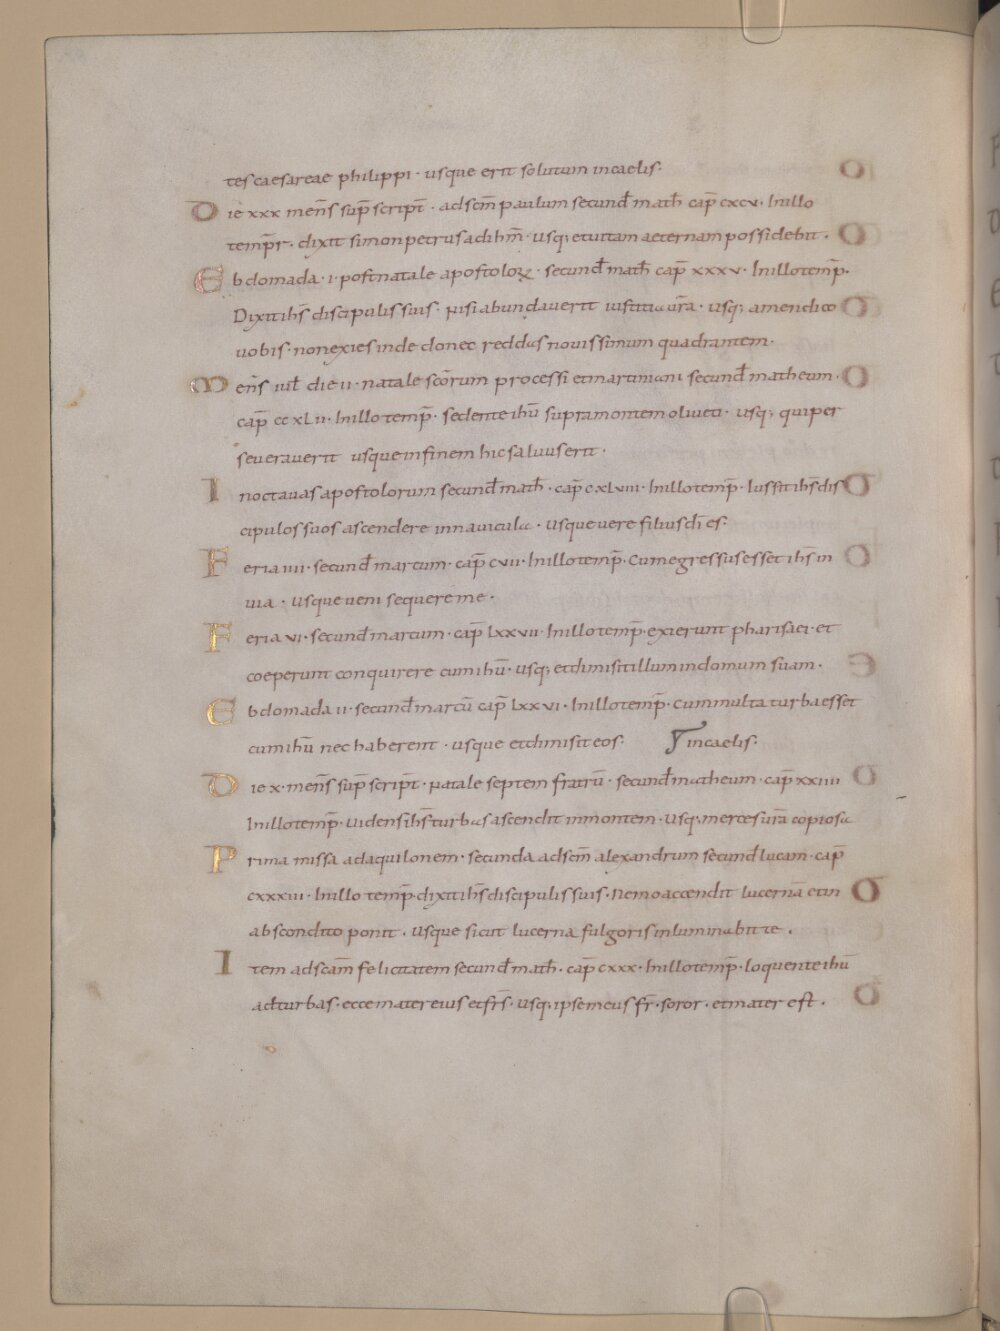 tes caesareae philippi · usque erit solutum in caelis·
Die xxx mens̄ sup̄ script̄ · ad scm̄ paulum secund̄ math̄ cap̄ cxcv · In illo
temp̄r · dixit simon petrus ad ihm̄ · usq; et uitam aeternam possidebit ·
Ebdomada · i · post natale apostoloꝝ · secund̄ math̄ cap̄ xxxv · In illo temp̄ ·
Dixit ihs̄ discipulis suis · nisi abundauerit iustitia ūra · usq; amen dico
uobis · non exies inde donec reddas nouissimum quadrantem ·
Mens̄ iul̄ die ii · natale scōrum processi et martiniani secund̄ matheum ·
cap̄ ccxLii · In illo temp̄ · sedente ihū supra montem oliueti · usq; qui per
seuerauerit usque in finem hic saluus erit ·
In octauas apostolorum secund̄ math̄ · cap̄ cxLviii · In illo temp̄ · Iussit ihs̄ dis
cipulos suos ascendere in nauicula · usque uere filius dī es·
Feria iiii · secund̄ marcum · cap̄ cvii · In illo temp̄ · Cum egressus esset ihs̄ in
uia · usque ueni sequere me ·
Feria vi · secund̄ marcum · cap̄ lxxvii · In illo temp̄ · exierunt pharisaei · et
coeperunt conquirere cum ihū · usq; et dimisit illum in domum suam ·
Ebdomada ii · secund̄ marcū cap̄ lxxvi · In illo temp̄ · cum multa turba esset
cum ihū nec haberent · usque et dimisit eos· in caelis·
Die x · mens̄ sup̄ script̄ · natale septem fratrū · secund̄ matheum · cap̄ xxiiii
In illo temp̄ · uidens ihs̄ turbas ascendit in montem · usq; merces ūra copiosa
Prima missa ad aquilonem · secunda ad scm̄ alexandrum secund̄ lucam · cap̄
cxxxiii · In illo temp̄ · dixit ihs̄ discipulis suis · Nemo accendit lucernā et in
abscondito ponit · usque sicut lucerna fulgoris inluminabit te ·
Item ad scam̄ felicitatem secund̄ math̄ · cap̄ cxxx · In illo temp̄ · loquente ihū
ad turbas · ecce mater eius et frs̄ · usq; ipse meus fr̄ · soror · et mater est ·